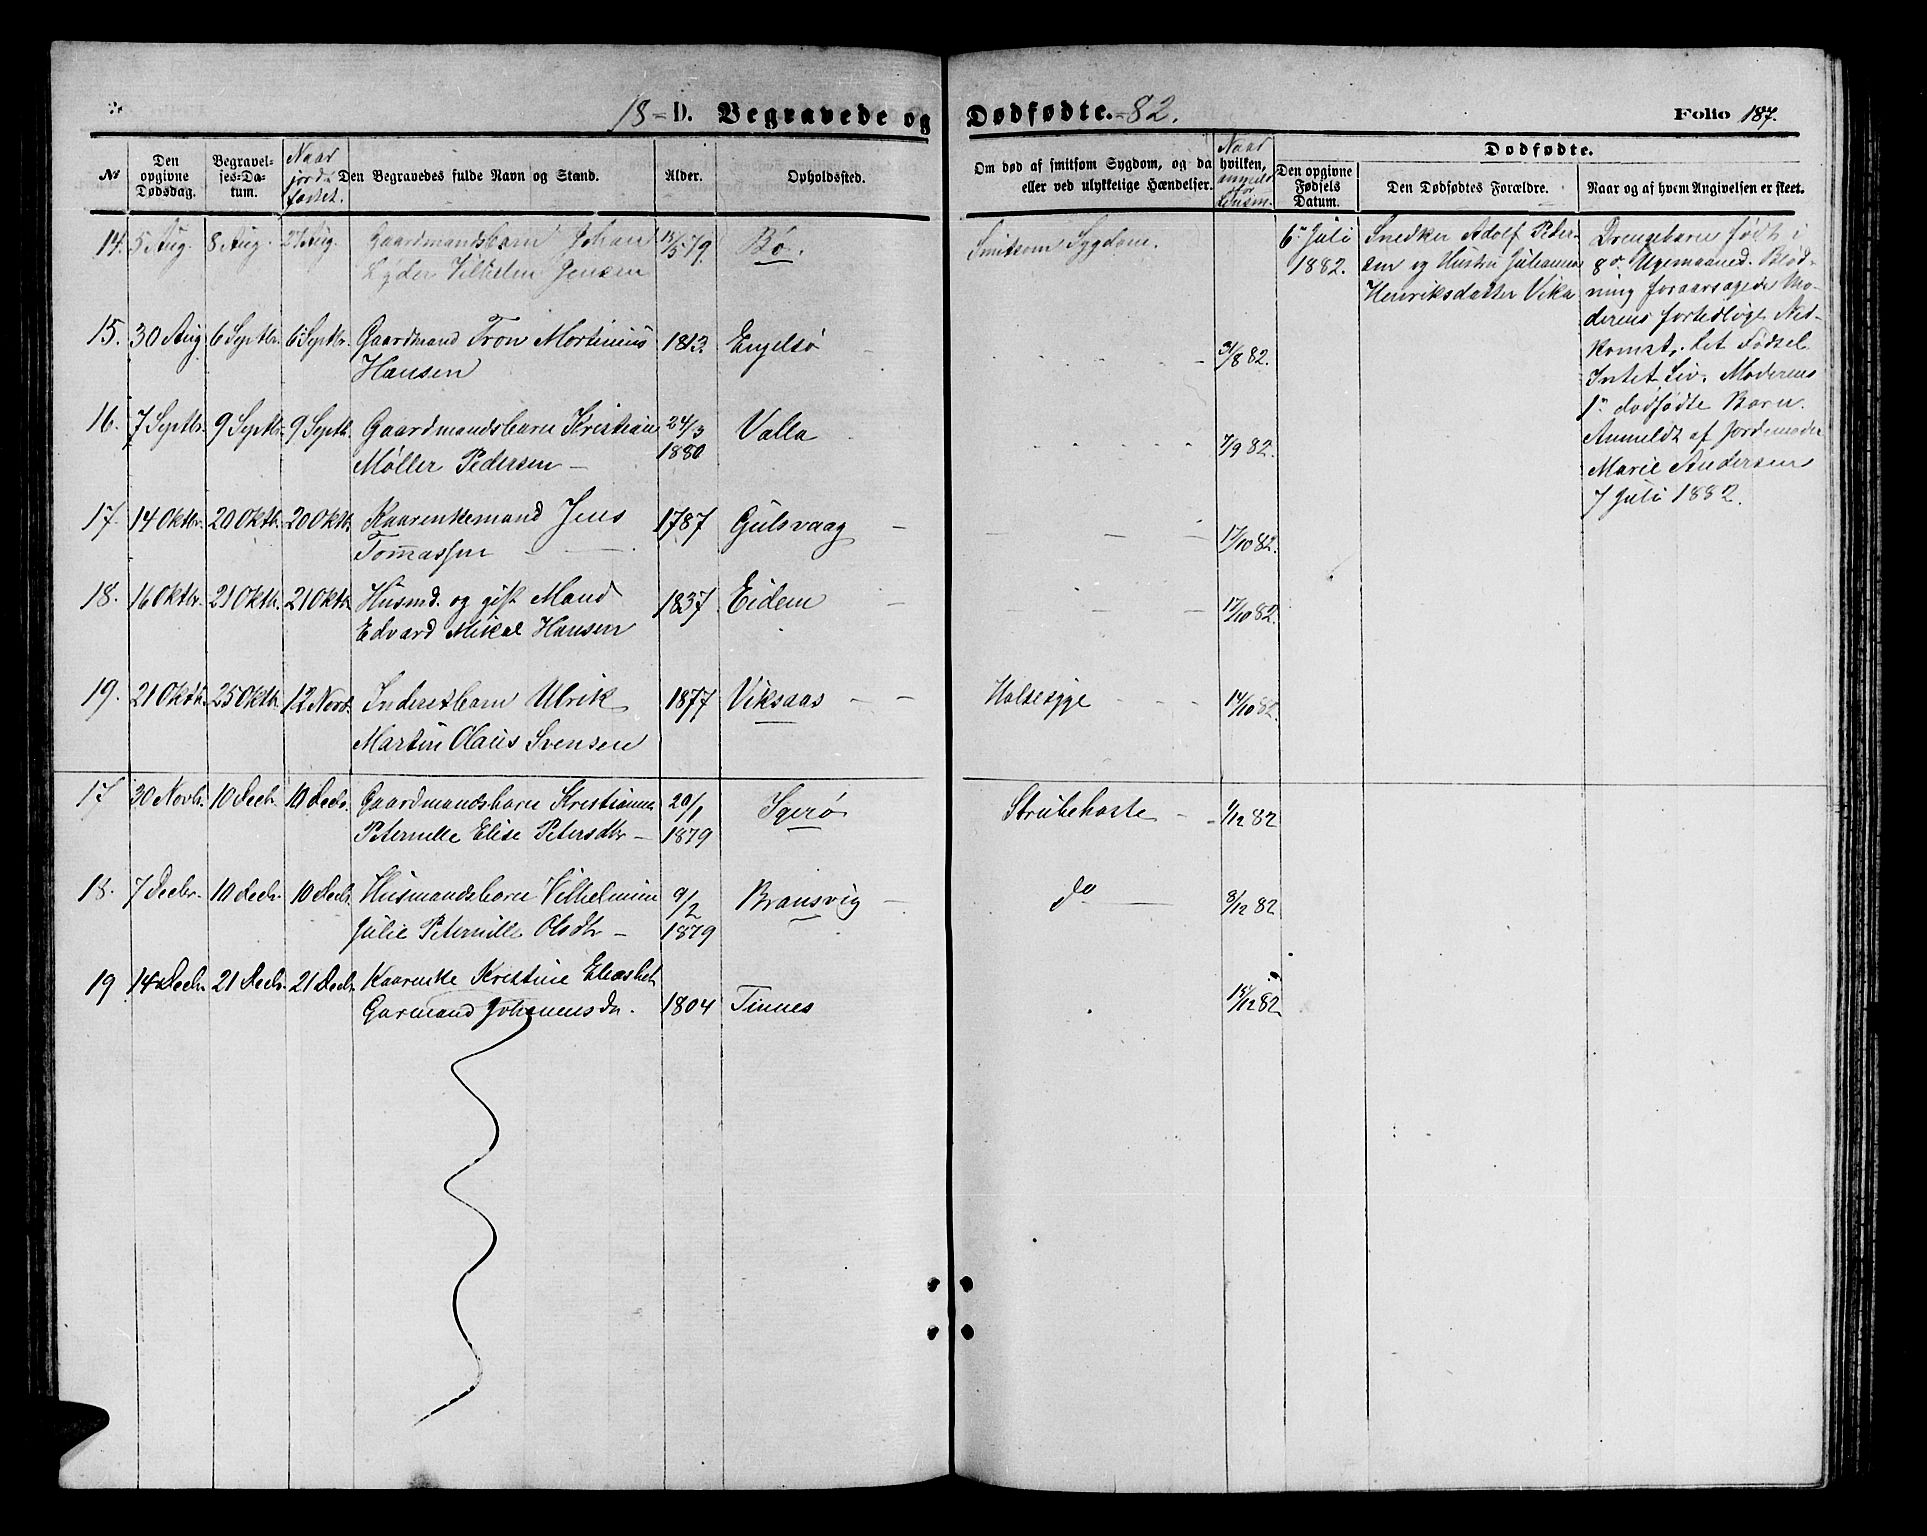 18- D. Begravede og Dødfødte. -82.
Folio 187.
№
Den opgivne Dødsdag.
Begravelses-Datum.
Naar jordfæstet.
Den Begravedes fulde Navn og Stand.
Alder.
Opholdssted.
Om død af smitsom Sygdom, og da hvilken, eller ved ulykkelige Hændelser.
Naar anmeldt for Lensm.
Dødfødte.
Den opgivne Fødsels Datum.
Den Dødfødtes Forældre.
Naar og af hvem Angivelsen er skeet.
14. 5 Aug. 8 Aug. 27 Aug. Gaardmandsbarn Johan 79. Bø. Smitsom Sygdom.
Lyder Jensen
15. 30 Aug 6 Septbr. 6 Septbr. Gaardmand Tron Mortinius 1813. Engelsø 31/8 82.
Hansen
16. 7 Septbr. 9 Septbr. 9 Septbr. Gaardmandsbarn Kristian 24/3 Valla 7/9 82.
Møller Pedersen 1880
17. 14 Oktbr. 20 Oktbr. 20 Oktbr. Kaarenkemand Jens 1787 Gulsvaag 17/10 82.
Tom̄assen
18. 16 Oktbr. 21 Oktbr. 21 Oktbr. Husmd. og gift Mand 1837 Eidem 17/10 82.
Edvard Mikal Hansen
19. 21 Oktbr. 25 Oktbr. 12 Novbr. Inderstbarn Ulrik 1877 Viksaas Halsesyge 82.
Martin Olaus Svensen
17 30 Novbr. 10 Decbr. 10 Decbr. Gaardmandsbarn Kristianna 20/1 Igerø Strubehoste 1/12 82
Peternille Elise Petersdtr 1879
18. 7 Decbr. 10 Decbr. 10 Decbr. Husmandsbarn Vilhelmine 9/2 Bransvig do 8/12 82
Julie Peternille Olsdtr 1879
19 14 Decbr. 21 Decbr. 21 Decbr. Kaarenke Kristine
Garmand Johannesdtr. 1804 Tinnes 15/12 82
6te Juli
1882.
Snedker Adolf Peder-
sen og Hustru Julianna
Henriksdatter Vika
Drengebarn født i
8de Ugemaaned. Blød-
ning foraarsagede Mo-
derens fortidlige Ned-
komst. Let Fødsel
Intet Liv. Moderens
1te dødfødte Barn.
Anmeldt af Jordemoder
Marie Andersen
7 Juli 1882.